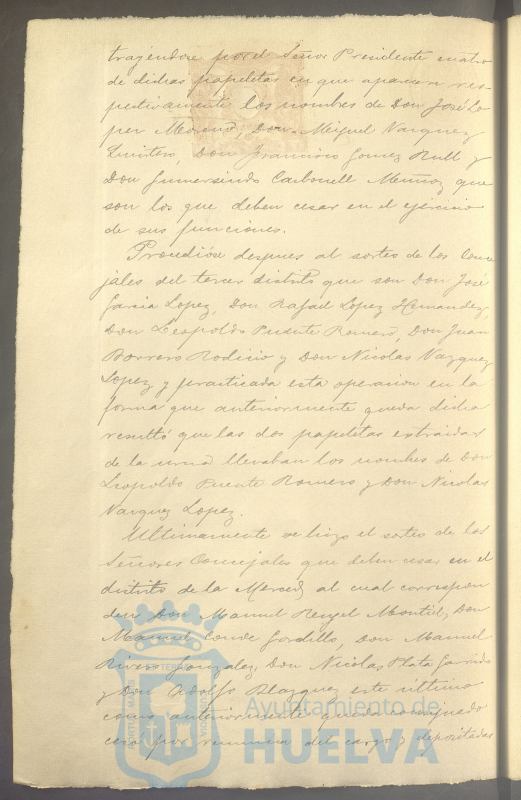 trayendose por el Señor Presidente cuatro
de dichas papeletas en que aparecen res-
pectivamente los nombres de Don José Lo-
pez Moreno, Don Miguel Vazquez
Quintero, Don Francisco Gomez Rull y
Don Gumersindo Carbonell Muñoz que
son los que deben cesar en el ejercicio
de sus funciones.
Procedióse despues al sorteo de los Conce-
jales del tercer distrito que son Don José
Garcia Lopez, Don Rafael Lopez Hernandez,
Don Leopoldo Puente Romero, Don Juan
Borrero Rodicio y Don Nicolas Vazquez
Lopez y practicada esta operacion en la
forma que anteriormente queda dicha
resultó que las dos papeletas extraidas
de la urna llevaban los nombres de Don
Leopoldo Puente Romero y Don Nicolas
Vazquez Lopez.
Ultimamente se hizo el sorteo de los
Señores Concejales que deben cesar en el
distrito de la Merced al cual correspon
den Don Manuel Rengel Montiel, Don
Manuel Conde Gordillo, Don Manuel
Rivero Gonzalez, Don Nicolas Plata Garrido
y Don Adolfo Blazquez este último
como anteriormente queda consignado
cesó por renuncia del cargo y depositadas
Ayuntamiento de
HUELVA